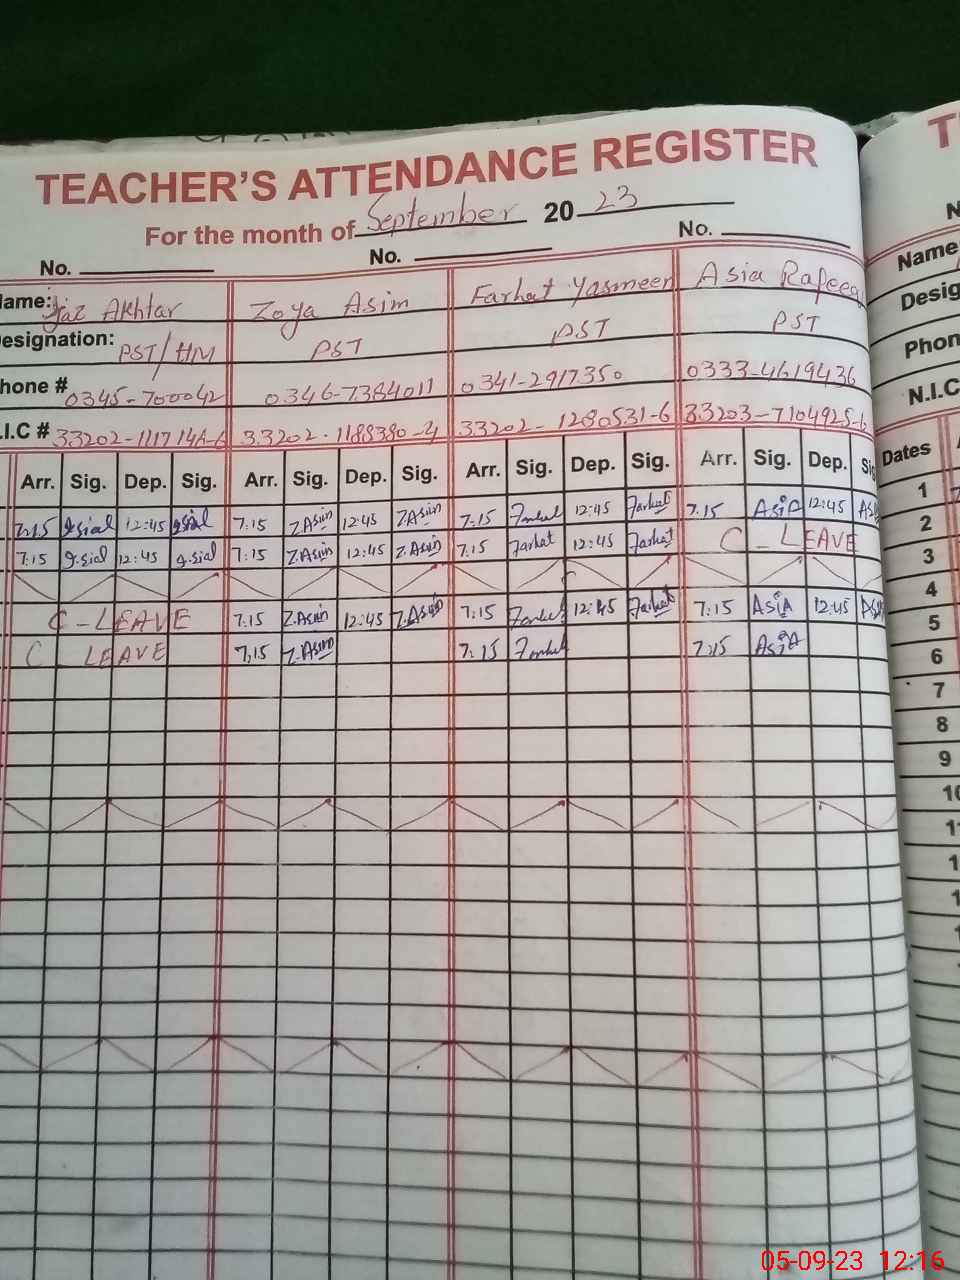 TEACHER'S ATTENDANCE REGISTER
For the month of September 20 23
No. No. No.
Name: Ijaz Akhtar Zoya Asim Farhat Yasmeen Asia Rafeeq
Designation: PST/HM PST PST PST
Phone # 0345-700042 0346-7384011 0341-2917350 0333-4619436
N.I.C # 33202-1188380-4 33202-1280531-6 33203-7104925-6
Arr. Sig. Dep. Sig. Arr. Sig. Dep. Sig. Arr. Sig. Dep. Sig. Arr. Sig. Dep. Sig
7:15 g.sial 12:45 g.sial 7:15 Z.Asim 12:45 Z.Asim 7:15 12:45 Farhat 7:15 ASiA 12:45 ASi
7:15 g.sial 12:45 g.sial 7:15 Z.Asim 12:45 Z.Asim 7:15 Farhat 12:45 Farhat C - LEAVE
C - LEAVE 7:15 Z.Asim 12:45 Z.Asim 7:15 12:45 Farhat 7:15 ASiA 12:45 ASi
C - LEAVE 7:15 Z.Asim 7:15 7:15 ASiA
T
N
Name
Desig
Phon
N.I.C
Dates
1
2
3
4
5
6
7
8
9
10
11
1
1
1
1
05-09-23 12:16